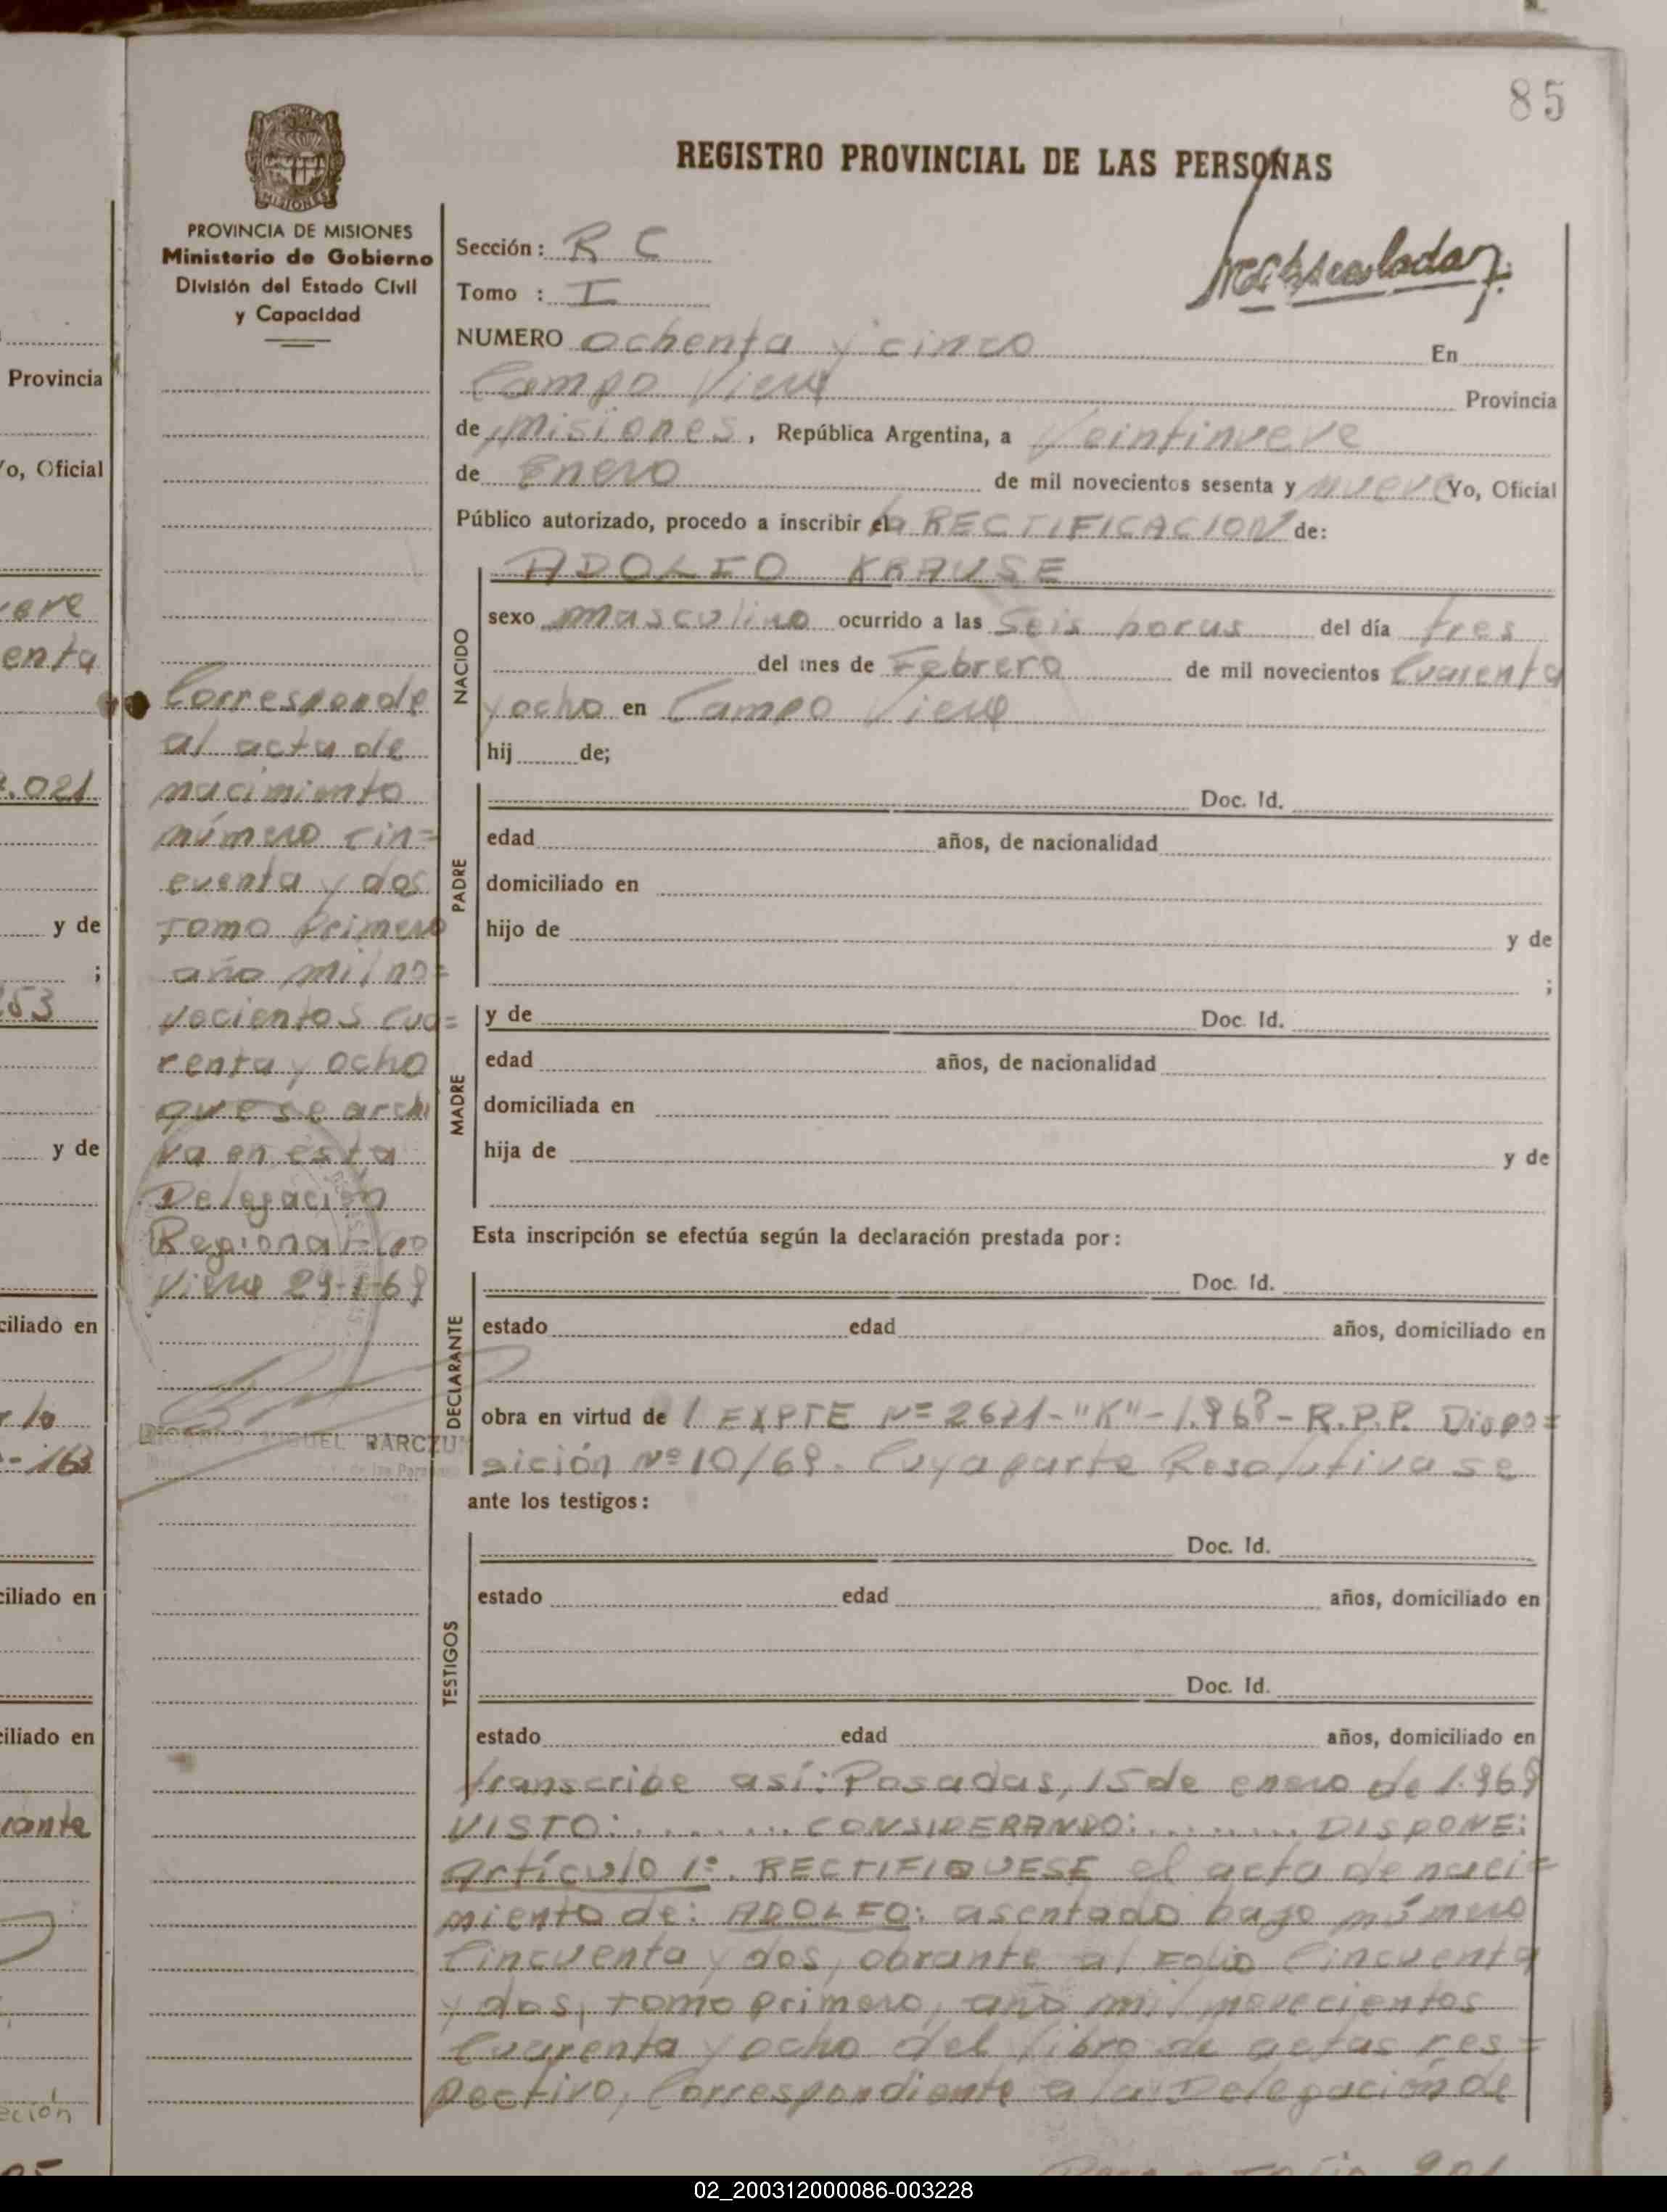 85
REGISTRO PROVINCIAL DE LAS PERSONAS
MISIONES
PROVINCIA DE MISIONES
Ministerio de Gobierno
División del Estado Civil
y Capacidad
Sección : R C
Tomo : I
NUMERO ochenta y cinco En
Campo Viera Provincia
de Misiones, República Argentina, a Veintinueve
de Enero de mil novecientos sesenta y nueve Yo, Oficial
Público autorizado, procedo a inscribir la RECTIFICACION de:
NACIDO
ADOLFO KRAUSE
sexo masculino ocurrido a las Seis horas del día tres
del mes de Febrero de mil novecientos Cuarenta
y ocho en Campo Viera
hij de;
PADRE
Doc. Id.
edad años, de nacionalidad
domiciliado en
hijo de y de
;
MADRE
y de Doc. Id.
edad años, de nacionalidad
domiciliada en
hija de y de
Esta inscripción se efectúa según la declaración prestada por :
DECLARANTE
Doc. Id.
estado edad años, domiciliado en
obra en virtud de l EXPTE Nº 2621-"K"-1.968-R.P.P. Dispo=
sición Nº 10/69. Cuya parte Resolutiva se
ante los testigos :
TESTIGOS
Doc. Id.
estado edad años, domiciliado en
Doc. Id.
estado edad años, domiciliado en
transcribe así: Posadas, 15 de enero de 1.969
VISTO: ........ CONSIDERANDO: ........ DISPONE:
Artículo 1º. RECTIFIQUESE el acta de naci=
miento de: ADOLFO: asentado bajo número
Cincuenta y dos, obrante al Folio Cincuenta
y dos, tomo primero, año mil novecientos
Cuarenta y ocho del libro de actas res=
pectivo, Correspondiente a la Delegación de
Corresponde
al acta de
nacimiento
número cin=
cuenta y dos
Tomo Primero
año mil no=
vecientos cua=
renta y ocho
que se archi
va en esta
Delegación
Regional Cpo
Viera 29-1-69
MIGUEL BARCZU
Provincia
Yo, Oficial
enta
.021
y de
;
253
y de
ciliado en
-163
ciliado en
ciliado en
02_200312000086-003228